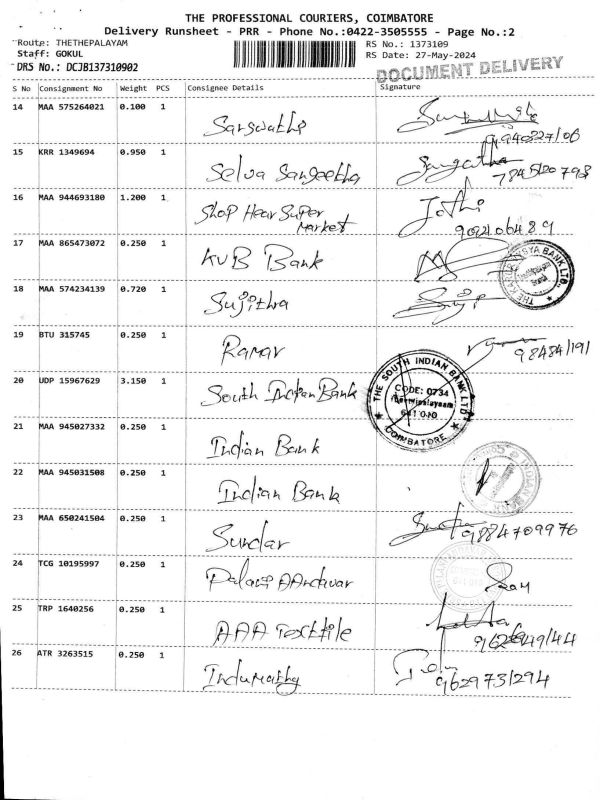 THE PROFESSIONAL COURIERS, COIMBATORE
Delivery Runsheet - PRR - Phone No.:0422-3505555 - Page No.:2
Route: THETHEPALAYAM RS No.: 1373109
Staff: GOKUL RS Date: 27-May-2024
DRS No.: DCJB137310902
DOCUMENT DELIVERY
S No Consignment No Weight PCS Consignee Details Signature
14 MAA 575264021 0.100 1 Sarswathi
15 KRR 1349694 0.950 1 Selva Sangeetha Sangatha
7845120798
16 MAA 944693180 1.200 1 Shop Hear Super Market Jothi
17 MAA 865473072 0.250 1 KVB Bank
THE KARUR VYSYA BANK LTD.
18 MAA 574234139 0.720 1 Sujithra
19 BTU 315745 0.250 1 Raman
20 UDP 15967629 3.150 1 South Indian Bank
THE SOUTH INDIAN BANK LTD
CODE: 0734
641 010
COIMBATORE
21 MAA 945027332 0.250 1 Indian Bank
22 MAA 945031508 0.250 1 Indian Bank
INDIAN BANK
23 MAA 650241504 0.250 1 Sundar
9884709976
24 TCG 10195997 0.250 1
25 TRP 1640256 0.250 1 AAA Textile
26 ATR 3263515 0.250 1 Indumathy
9629731294